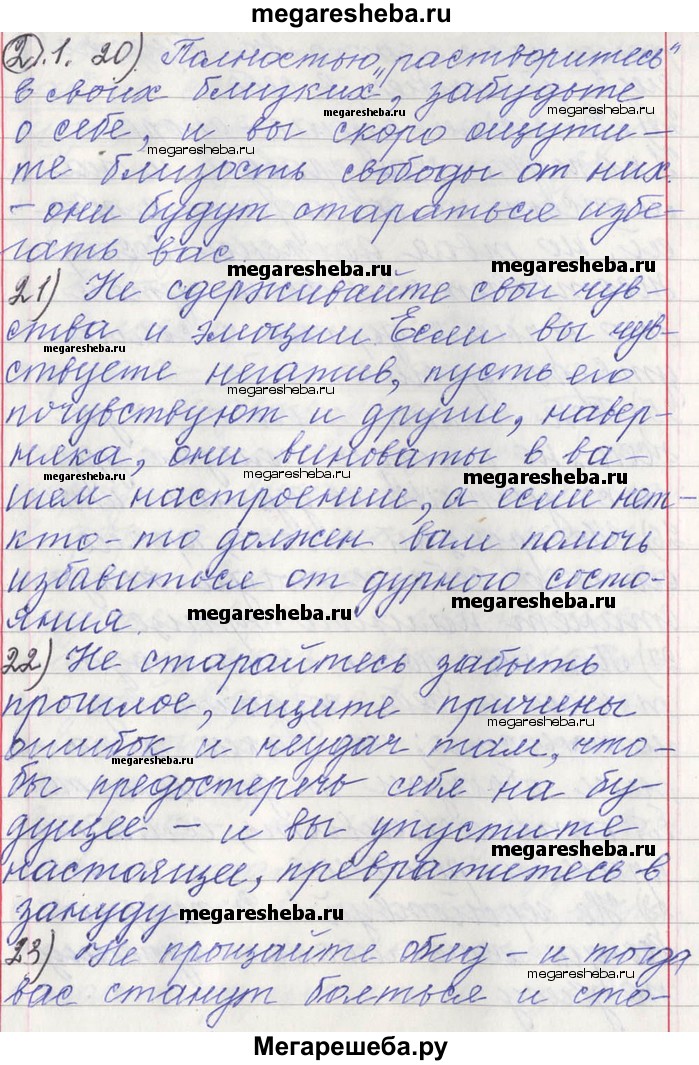 megaresheba.ru
2).1. 20) Полностью „растворитесь"
в своих близких, забудьте
megaresheba.ru
о себе, и вы скоро ощути-
megaresheba.ru
те близость свободы от них
megaresheba.ru
- они будут стараться избе-
гать вас.
megaresheba.ru
megaresheba.ru
21) Не сдерживайте свои чув-
ства и эмоции Если вы чув-
megaresheba.ru
megaresheba.ru
ствуете негатив, пусть его
megaresheba.ru
почувствуют и другие, навер-
няка, они виноваты в ва-
megaresheba.ru
megaresheba.ru
megaresheba.ru
шем настроении, а если нет-
кто-то должен вам помочь
избавиться от дурного состо-
яния.
megaresheba.ru
megaresheba.ru
22) Не старайтесь забыть
прошлое, ищите причины
megaresheba.ru
ошибок и неудач там, что-
megaresheba.ru
бы предостеречь себя на бу-
дущее - и вы упустите
megaresheba.ru
настоящее, превратитесь в
зануду.
megaresheba.ru
23) Не прощайте обид - и тогда
megaresheba.ru
вас станут бояться и сто-
Мегарешеба.ру